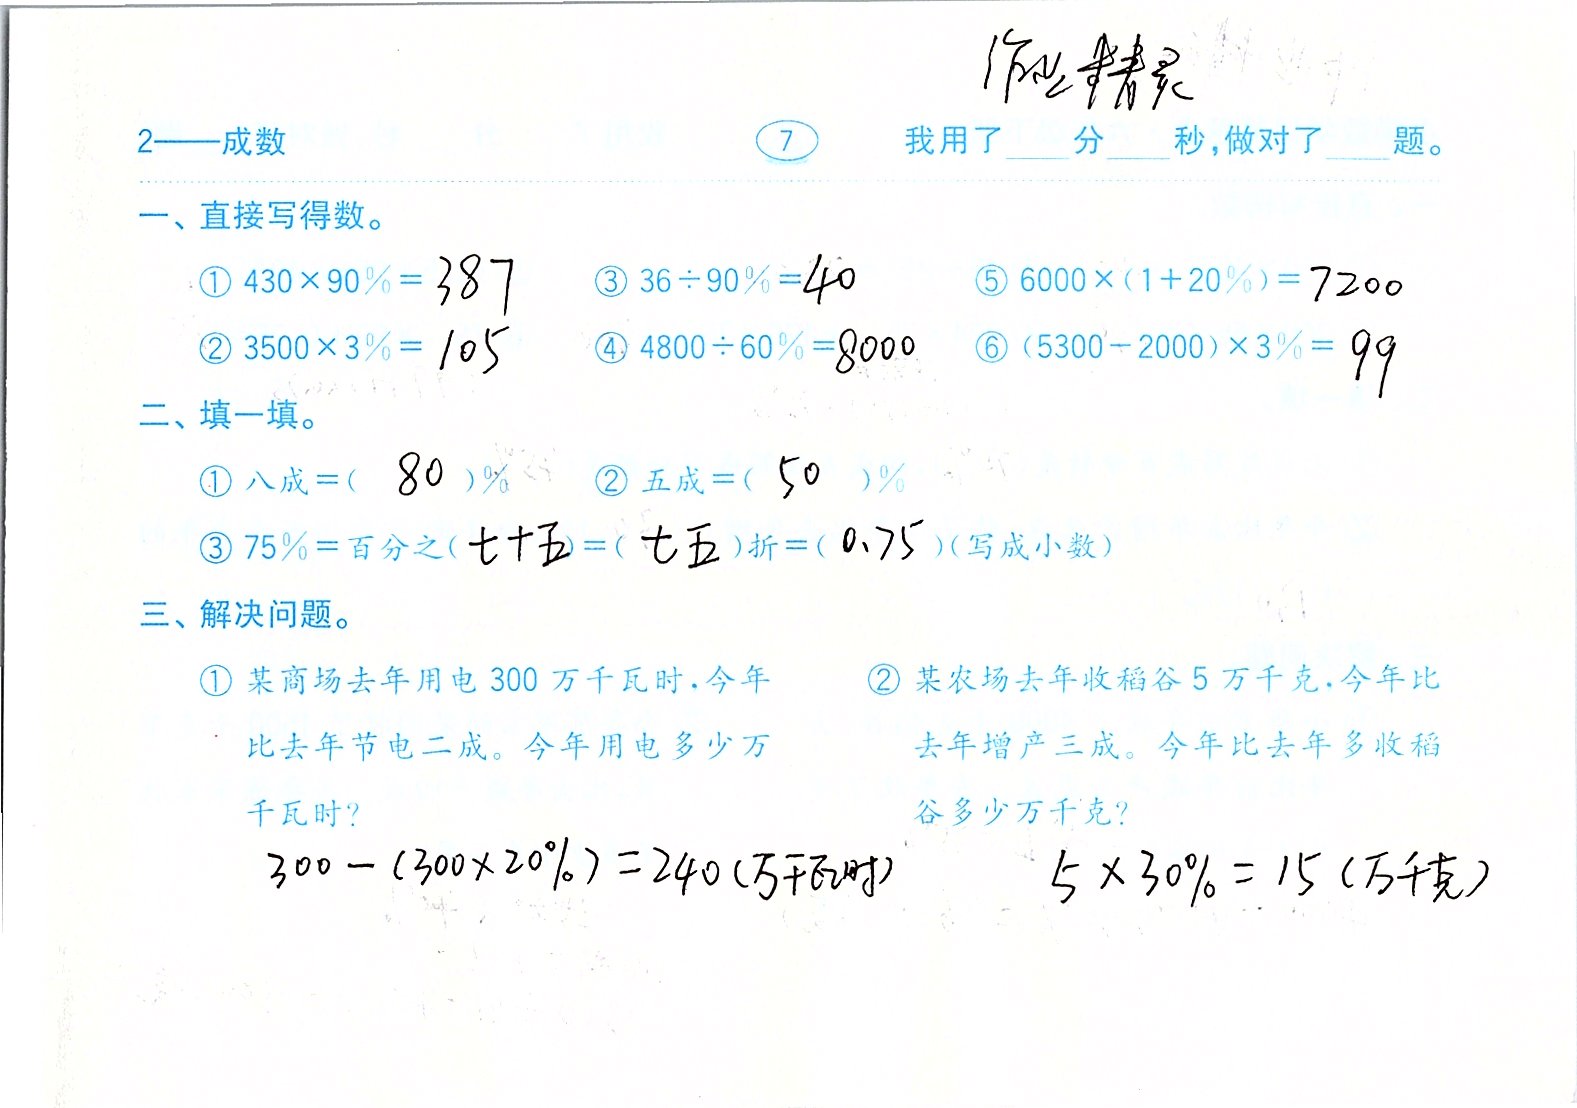 作业精灵
2——成数 7 我用了____分____秒,做对了____题。
一、直接写得数。
① 430×90%=387 ③ 36÷90%=40 ⑤ 6000×(1+20%)=7200
② 3500×3%=105 ④ 4800÷60%=8000 ⑥ (5300-2000)×3%=99
二、填一填。
① 八成=( 80 )% ② 五成=( 50 )%
③ 75%=百分之(七十五)=(七五)折=(0.75)(写成小数)
三、解决问题。
① 某商场去年用电 300 万千瓦时,今年
比去年节电二成。今年用电多少万
千瓦时?
300-(300×20%)=240(万千瓦时)
② 某农场去年收稻谷 5 万千克,今年比
去年增产三成。今年比去年多收稻
谷多少万千克?
5×30%=15(万千克)